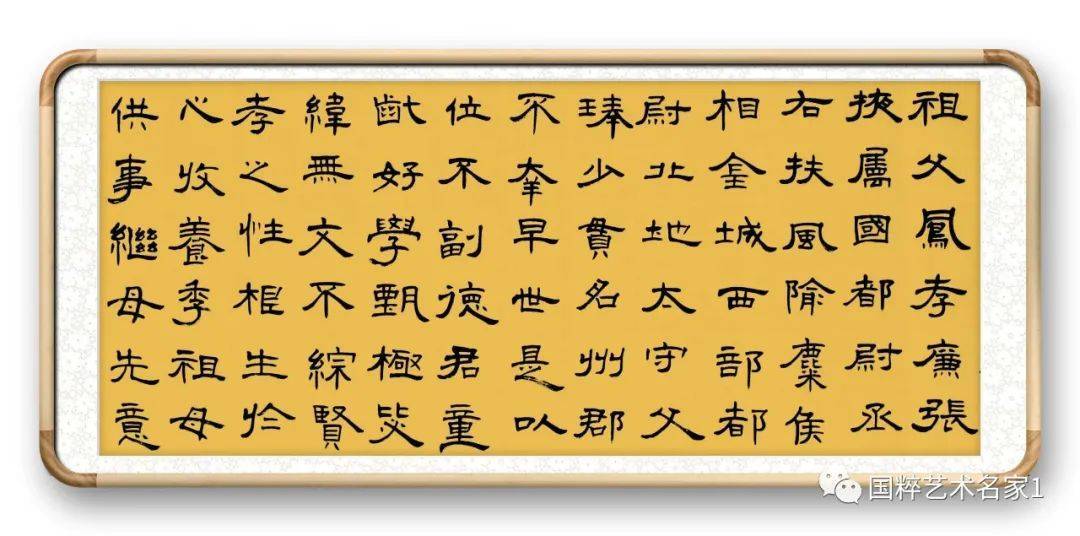 祖父鳳孝廉張
掖屬國都尉丞
右扶風隃麋侯
相金城西部都
尉北地太守父
琫少貫名州郡
不幸早世是以
位不副德君童
齔好學甄極毖
緯無文不綜賢
孝之性根生於
心收養季祖母
供事繼母先意
国粹艺术名家1